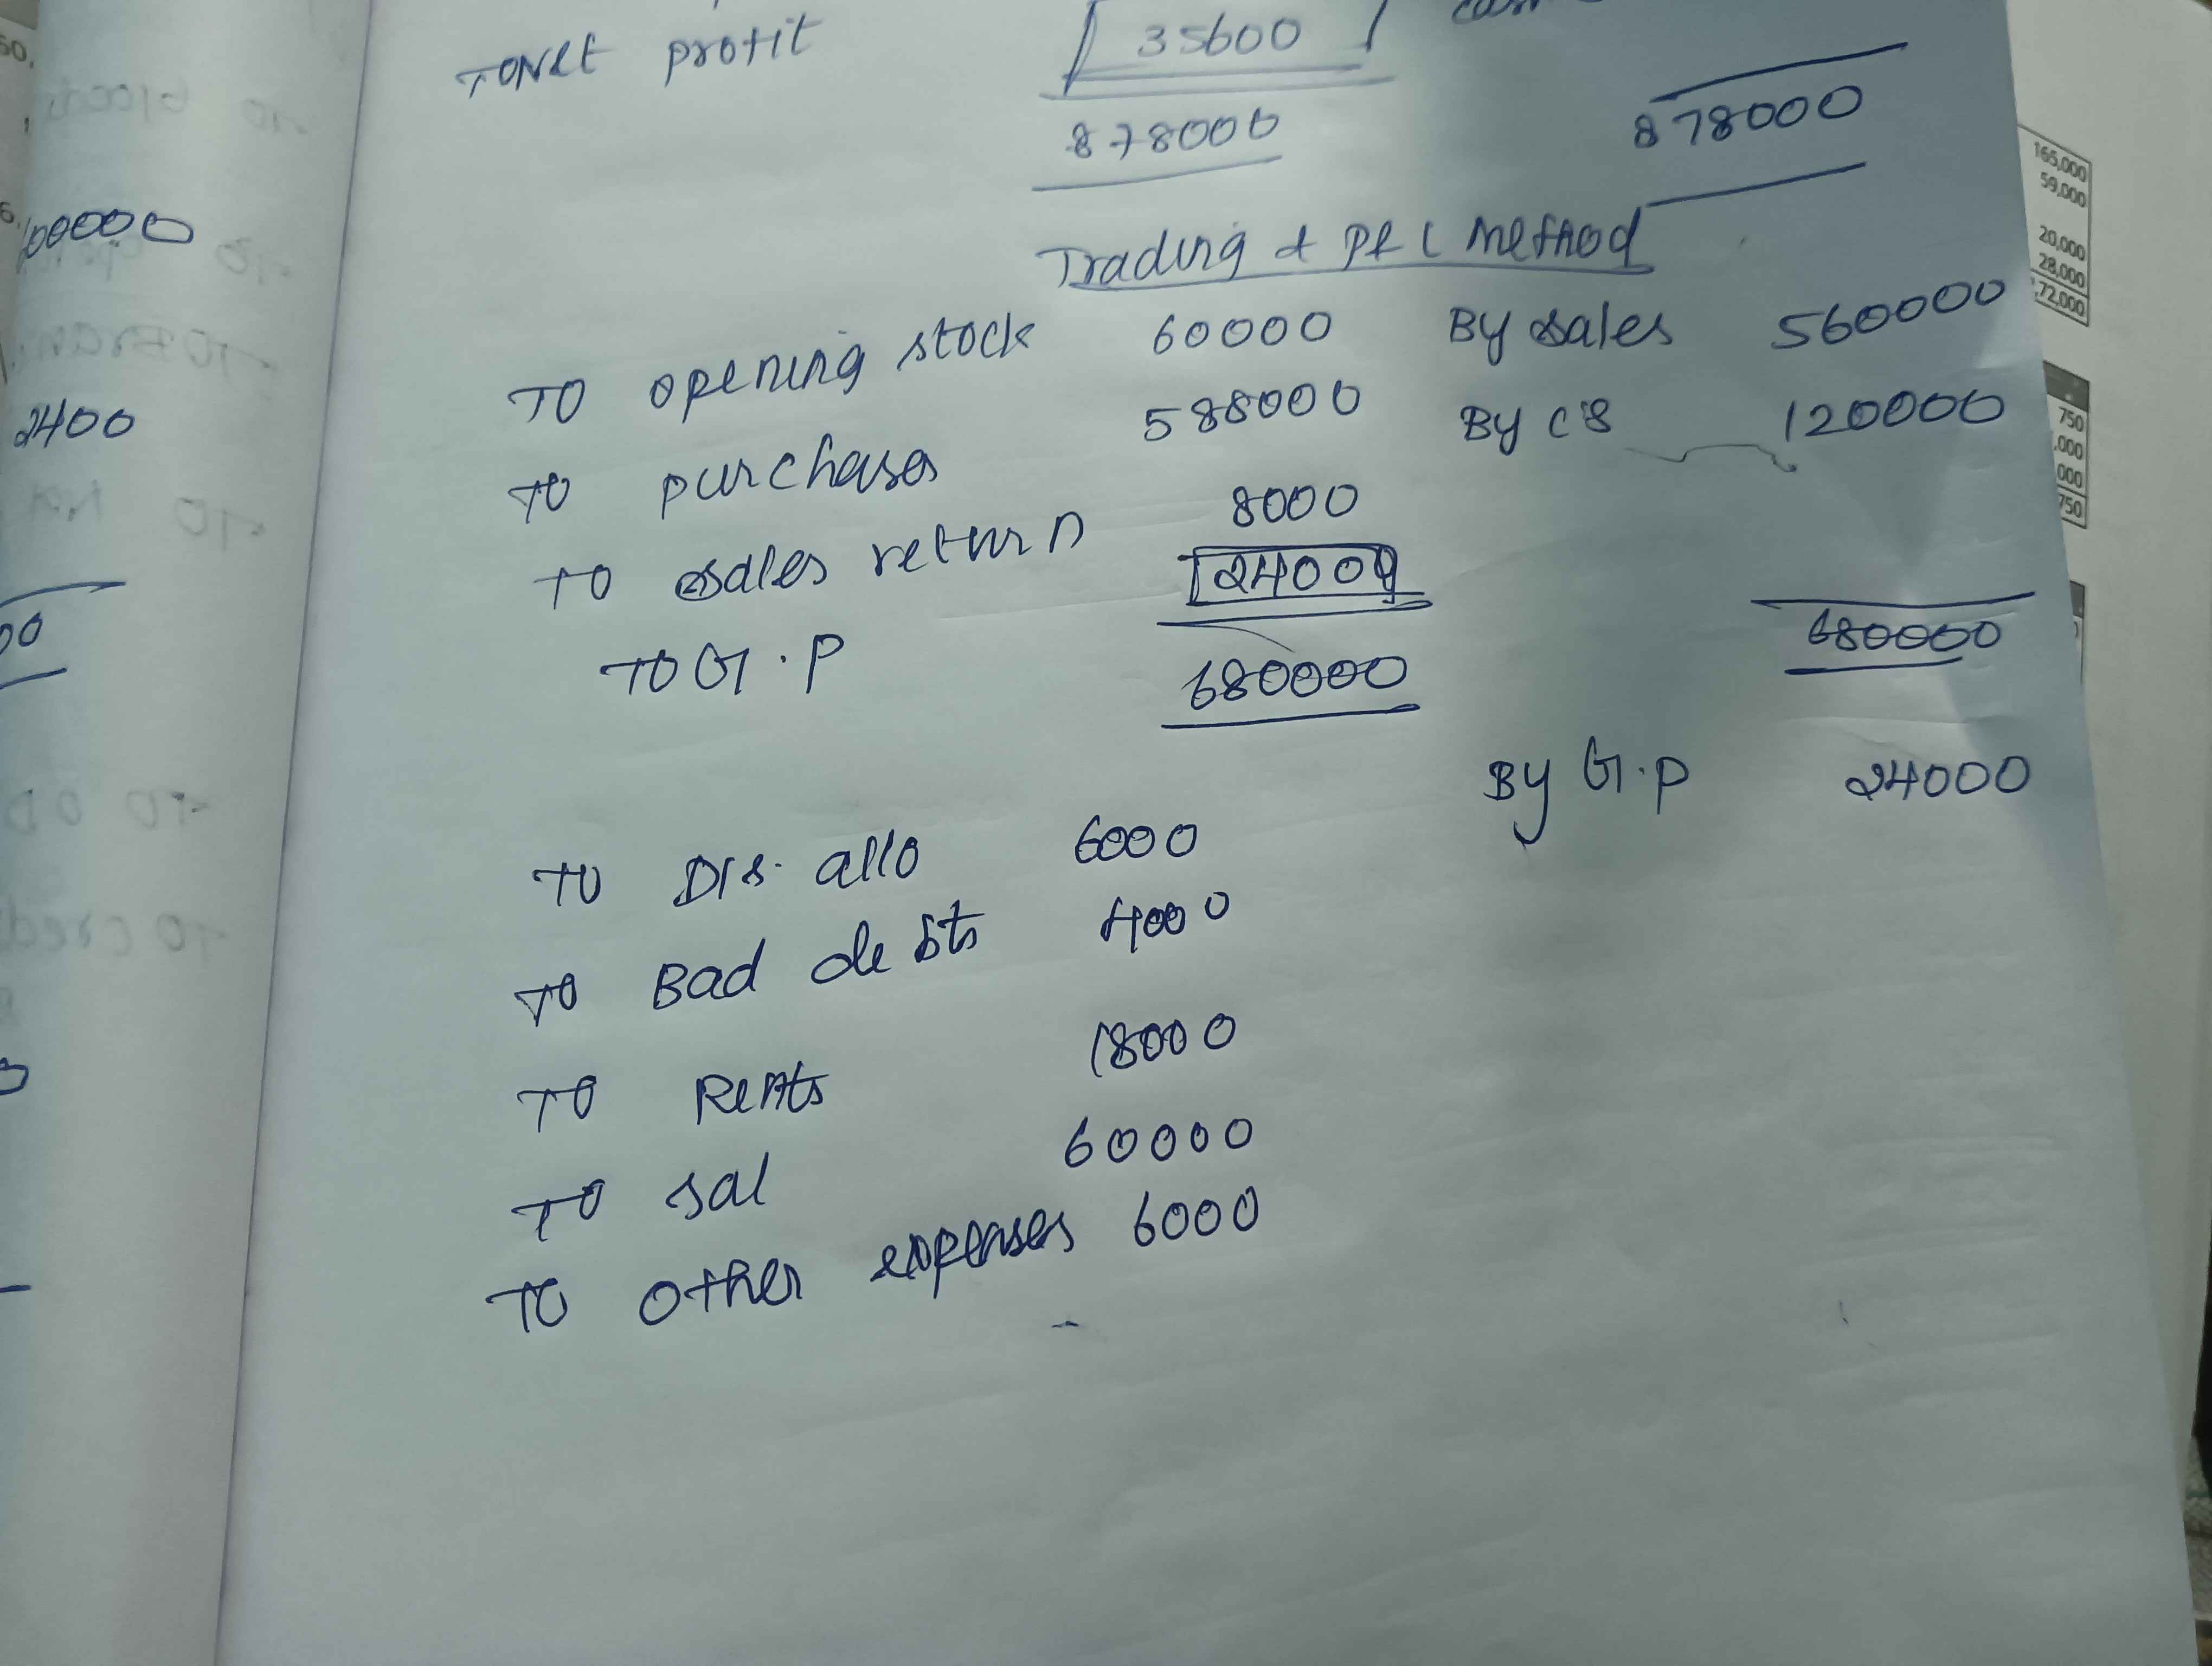 TO Net profit 35600
878000 878000
Trading & P&L Method
TO opening stock 60000 By sales 560000
TO purchases 588000 By C'S 120000
TO sales return 8000
TO G.P 24000
680000 680000
By G.P 24000
TO Dis. allo 6000
TO Bad debts 4000
TO Rents 18000
TO sal 60000
TO other expenses 6000
2400
165,000
59,000
20,000
28,000
72,000
750
,000
000
750